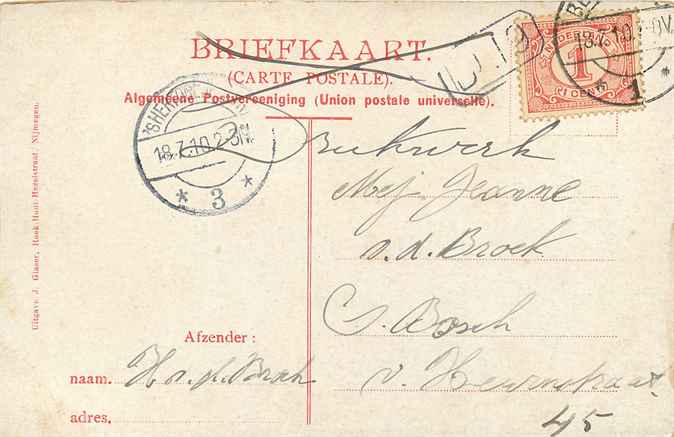 BRIEFKAART.
(CARTE POSTALE).
Algemeene Postvereeniging (Union postale universelle).
NEDERLAND
1
1 CENT
18.7.10
1
'SHERTOGEN
18.7.10.2-3N.
* 3 *
Drukwerk
Mej. Jeanne
v. d. Broek
's. Bosch
45
Afzender:
naam. H v. d. Broek
adres.
Uitgave J. Glaser, Hoek Hout-Hezelstraat, Nijmegen.